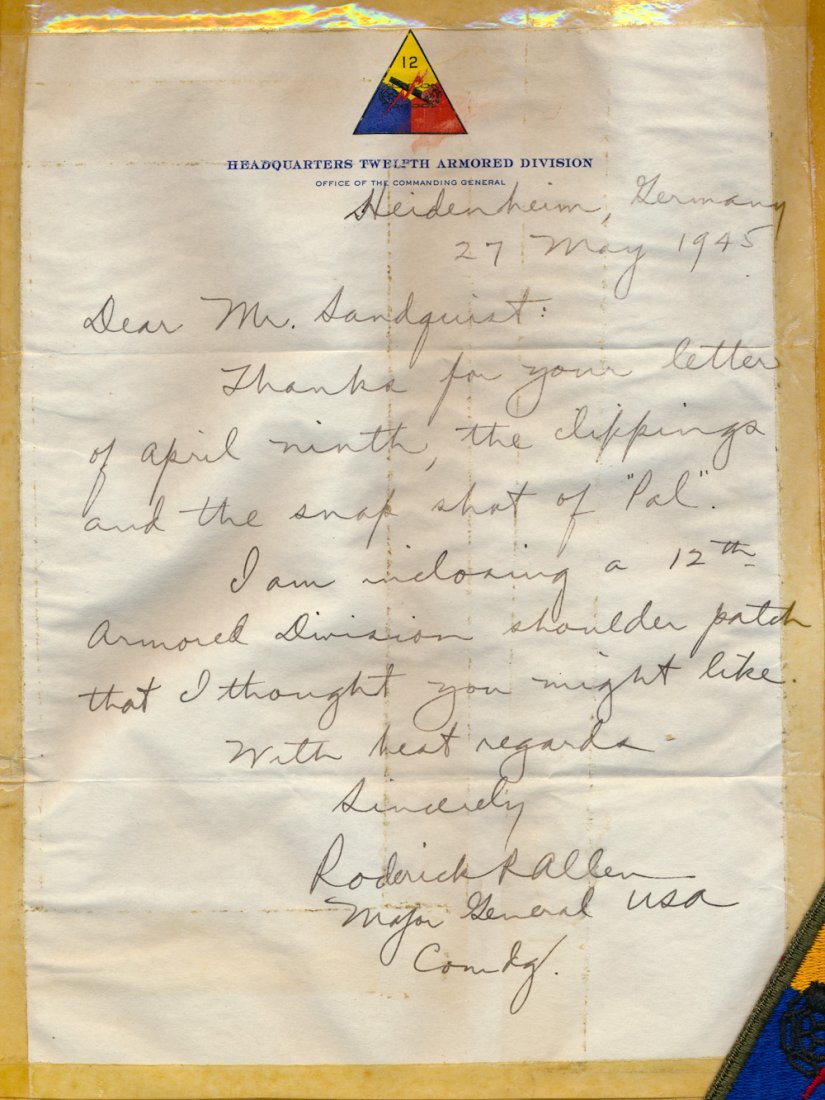 12
HEADQUARTERS TWELFTH ARMORED DIVISION
OFFICE OF THE COMMANDING GENERAL
Heidenheim, Germany
27 May 1945
Dear Mr. Sandquist:
Thanks for your letter
of April ninth, the clippings
and the snap shot of "Pal".
I am inclosing a 12th
Armored Division shoulder patch
that I thought you might like.
With best regards
Sincerely
Roderick R Allen
Major General USA
Comdg.